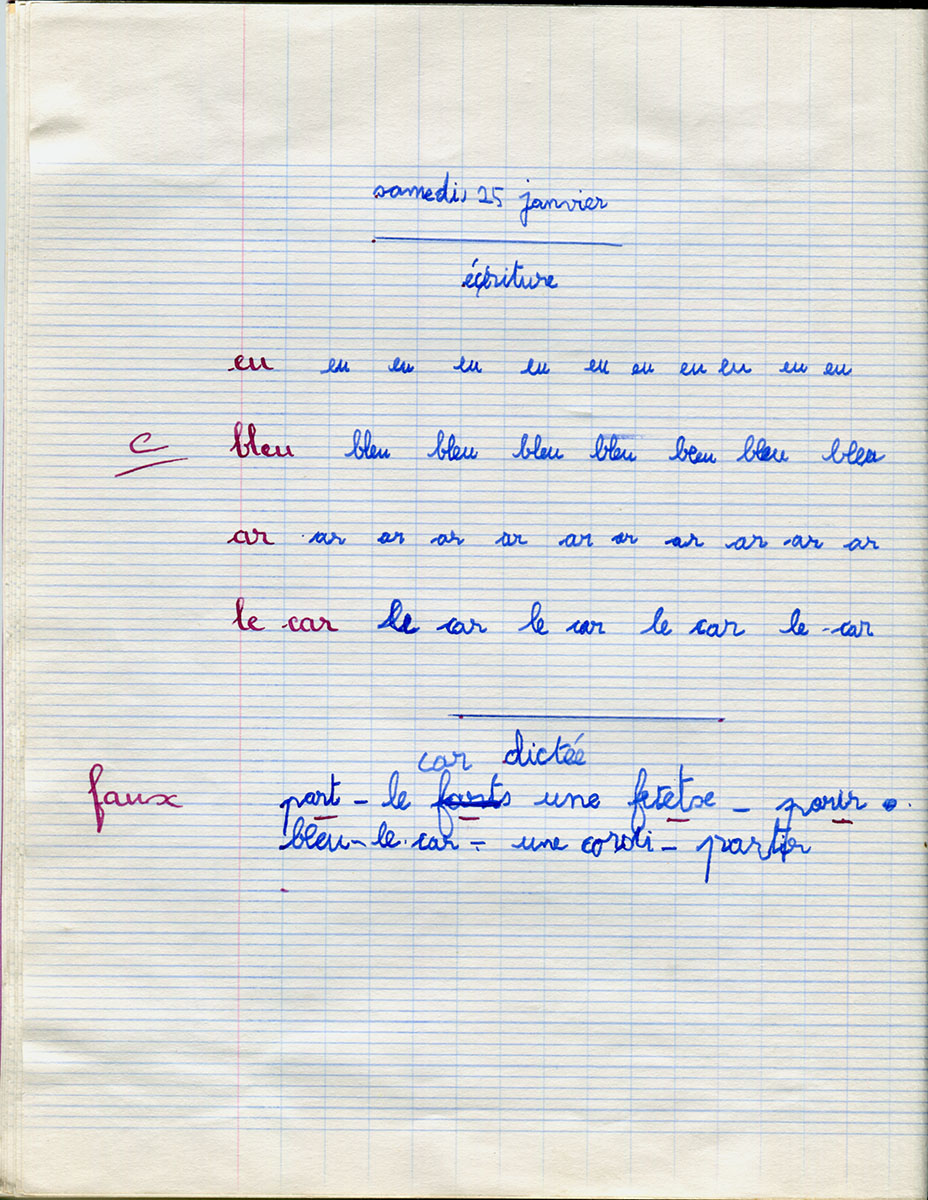 samedi 25 janvier
écriture
eu eu eu eu eu eu eu eu eu eu eu
C bleu bleu bleu bleu bleu bleu bleu bleu
ar ar ar ar ar ar ar ar ar ar ar
le car le car le car le car le car
car dictée
faux part - le une -
bleu - le car - une - partir